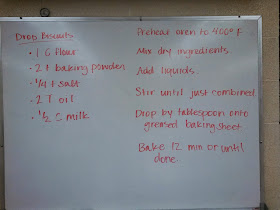 Drop Biscuits
• 1 C flour
• 2 t baking powder
• 1/4 t salt
• 2 T oil
• 1/2 C milk
Preheat oven to 400° F
Mix dry ingredients
Add liquids.
Stir until just combined.
Drop by tablespoon onto
greased baking sheet
Bake 12 min or until
done.